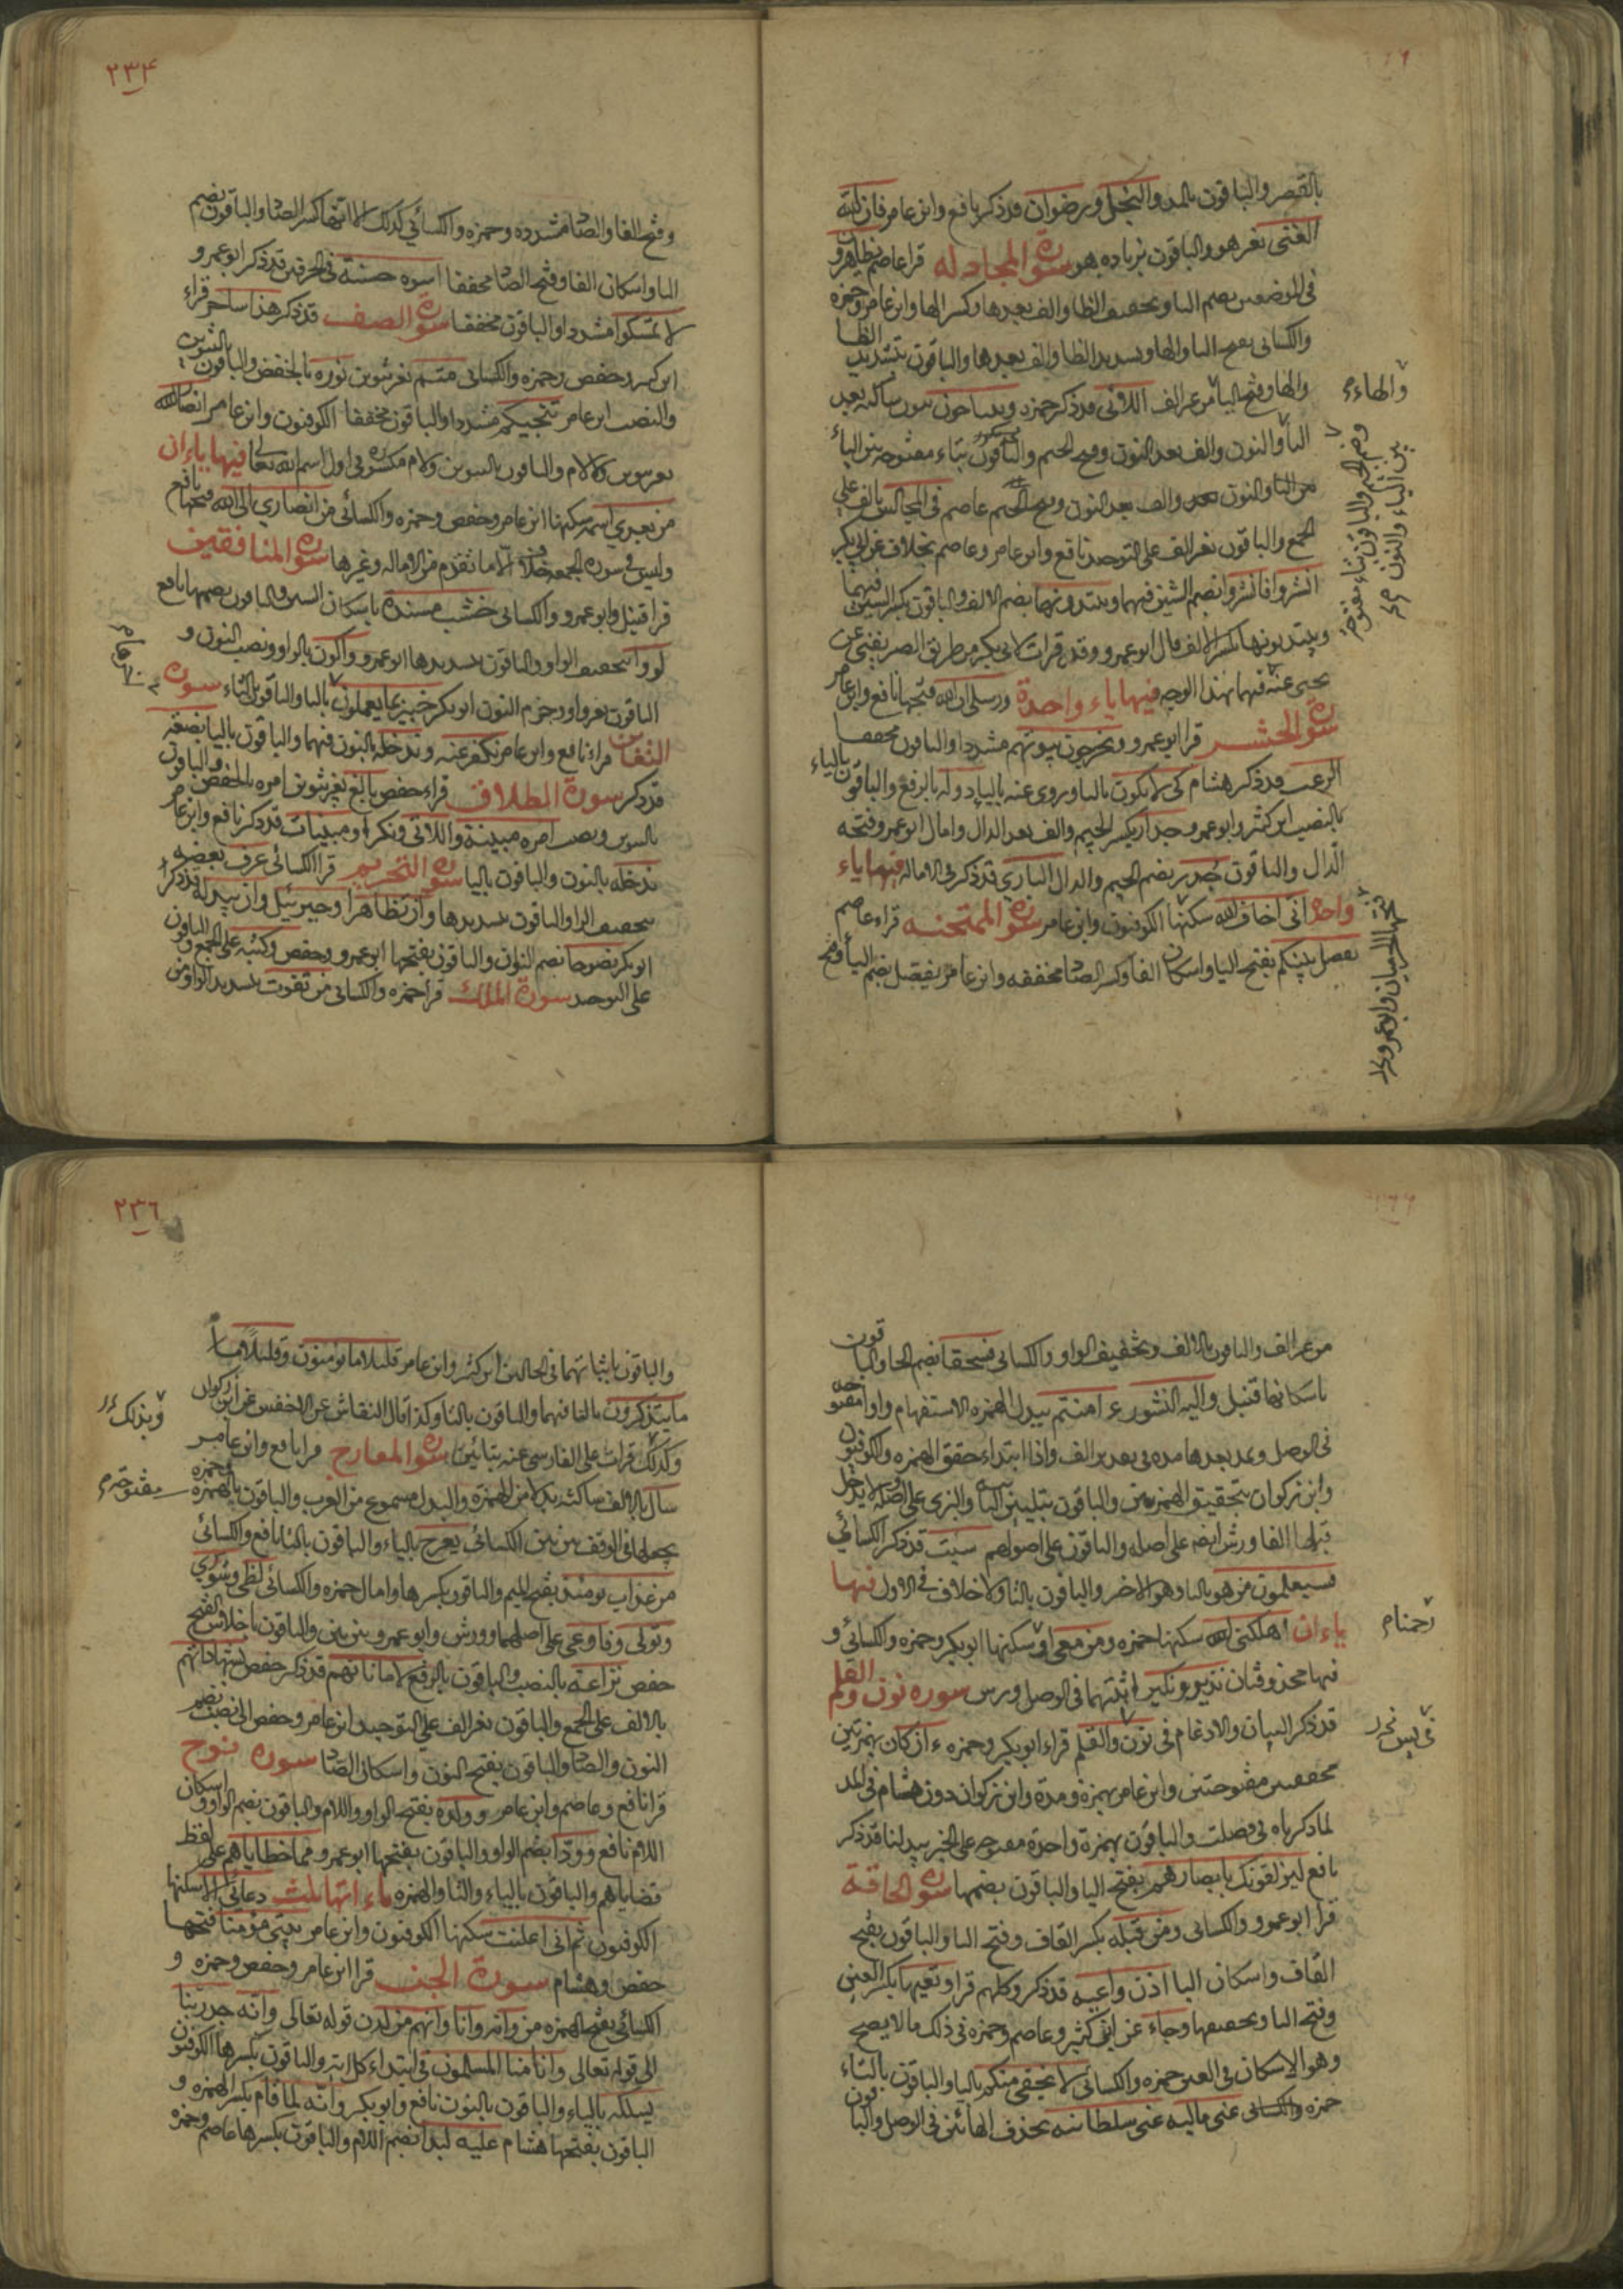 بالقصر والباقون بالمد والبخل ورضوان قد ذكر نافع وابن عامر فان الله
الغنى بغير هو والباقون بزياده هو سورة المجادله قرا عاصم يظاهرون
فى الموضعين بضم اليا وتخفيف الظا والف بعدها وكسر الها وابن عامر وحمزه
والكسائى بفتح اليا والها وتشديد الظا والف بعدها والباقون بتشديد الظا
والها وفتح اليا من غير الف اللائى قد ذكر حمزه ويتناجون بنون ساكنه بعد
والهاء
اليا والنون والف بعد النون وفتح الجيم والباقون بتاء مفتوحه بين الياء
من التا والنون والف بعد النون وفتح الجيم عاصم فى المجالس بالف على
وضم الجيم والباقون بتاء مفتوحه
بين الياء والنون
الجمع والباقون بغير الف على التوحيد نافع وابن عامر وعاصم بخلاف عن ابى بكر
انشزوا فانشزوا بضم الشين فيهما ويبتدونها بضم الالف والباقون بكسر الشين فيهما
ويبتديونها بكسر الالف قال ابو عمرو وقد قرات لابى بكر من طريق الصريفينى عن
يحيى عنه فيهما بهذا الوجه فيها ياء واحدة ورسلى ان الله فتحها نافع وابن عامر
سورة الحشر قرا ابو عمرو ويخربون بيوتهم مشددا والباقون مخففا
الرعب قد ذكر هشام كى لا تكون بالتا وروى عنه باليا دولة بالرفع والباقون بالياء
بالنصب ابن كثير وابو عمرو جدار بكسر الجيم والف بعد الدال وامال ابو عمرو فتحه
الدال والباقون جدر بضم الجيم والدال البارى قد ذكر فى الاماله فيها ياء
واحدة انى اخاف الله سكنها الكوفيون وابن عامر سورة الممتحنه قراء عاصم
فتحها الحرميان وابو عمرو
يفصل بينكم بفتح اليا واسكان الفا وكسر الصاد مخففه وابن عامر يفصل بضم اليا وفتح
٢٣٤
وفتح الفا والصاد مشدده وحمزه والكسائي كذلك الا انهما كسرا الصاد والباقون بضم
اليا واسكان الفا وفتح الصاد مخففا اسوه حسنة فى الحرفين قد ذكر ابو عمرو
لا تمسكوا مشددا والباقون مخففا سورة الصف قد ذكر هذا ساحر قراء
ابن كثير وحفص وحمزه والكسائى متم بغير تنوين نوره بالخفض والباقون بالتنوين
والنصب ابن عامر تنجيكم مشددا والباقون مخففا الكوفيون وابن عامر انصار الله
بغير تنوين ولا لام والباقون بالتنوين ولام مكسوره فى اول اسم الله تعالى فيها ياءان
من بعدي اسمه سكنها ابن عامر وحفص وحمزه والكسائى من انصاري الى الله فتحها نافع
وليس فى سورة الجمعه خلاف الا ما تقدم من الاماله وغيرها سورة المنافقين
قرا قنبل وابو عمرو والكسائى خشب مسندة باسكان الشين والباقون بضمها نافع
لووا بتخفيف الواو والباقون بتشديدها ابو عمرو واكون بالواو ونصب النون و
الباقون بغير واو وجزم النون ابو بكر خبير بما يعملون باليا والباقون بالتاء سورة
التغابن قرا نافع وابن عامر نكفر عنه وندخله بالنون فيهما والباقون باليا يضعفه
قد ذكر سورة الطلاق قراء حفص بالغ بغير تنوين امره بالخفض والباقون
بالتنوين ونصب امره مبينة واللائى ونكرا ومبينات قد ذكر نافع وابن عامر
ندخله بالنون والباقون باليا سورة التحريم قرا الكسائى عرف بعضه
بتخفيف الرا والباقون بتشديدها وان تظاهرا وجبريل وان يبدله قد ذكر
ابو بكر نصوحا بضم النون والباقون بفتحها ابو عمرو وحفص وكتبه على الجمع والباقون
على التوحيد سورة الملك قرا حمزه والكسائى من تفوت بتشديد الواو من
من غير الف والباقون بالالف وتخفيف الواو والكسائى فسحقا بضم الحا والباقون
باسكانها قنبل واليه النشور ءامنتم يبدل الهمزه الاستفهام واوا مفتوحه
فى الوصل ويمد بعدها مده فى تقدير الف واذا ابتداء حقق الهمزه والكوفيون
وابن ذكوان بتحقيق الهمزتين والباقون بتليين الثانيه والبزى على اصله لا يدخل
قبلها الفا وورش ايضا على اصله والباقون على اصولهم سيئت قد ذكر الكسائي
فسيعلمون من هو باليا وهو الاخير والباقون بالتا ولا خلاف فى الاول فيها
ياءان اهلكنى الله سكنها حمزه ومن معى او سكنها ابو بكر وحمزه والكسائى و
رحمنا
فيها محذوفتان نذير ونكير اثبتهما فى الوصل ورش سورة نون والقلم
قد ذكر البيان والادغام فى نون والقلم قراء ابو بكر وحمزه ءان كان بهمزتين
فى يس
محققتين مفتوحتين وابن عامر بهمزة ومدة وابن ذكوان دون هشام فى المد
لما ذكرناه فى فصلت والباقون بهمزة واحدة مفتوحه على الخبر يبدلنا قد ذكر
نافع ليزلقونك بابصارهم بفتح اليا والباقون بضمها سورة الحاقة
قرا ابو عمرو والكسائى ومن قبله بكسر القاف وفتح البا والباقون بفتح
القاف واسكان البا اذن واعيه قد ذكر وكلهم قرا وتعيها بكسر العين
وفتح اليا وتخفيفها وجاء عن ابن كثير وعاصم وحمزه فى ذلك ما لا يصح
وهو الاسكان فى العين حمزه والكسائى لا يخفى منكم باليا والباقون بالتاء
حمزه والكسائى عنى ماليه عنى سلطانيه بحذف الهائين فى الوصل والباقون
٢٣٦
والباقون باثباتهما فى الحالين ابن كثير وابن عامر قليلا ما يؤمنون وقليلا ما
ما يتذكرون باليا فيهما والباقون بالتا وكذا قال النقاش عن الاخفش عن ابن ذكوان
وبذلك
وكذلك قرات على الفارسى عنه بتائين سورة المعارج قرا نافع وابن عامر
سال بالالف ساكنه بدلا من الهمزة والبدل مسموع من العرب والباقون بالهمزه وحمزه
مفتوحة
يجعلها فى الوقف بين بين الكسائى يعرج بالياء والباقون بالتا نافع والكسائى
من عذاب يومئذ بفتح الميم والباقون بكسرها وامال حمزه والكسائى لظى وشوى
وتولى وفاوعى على اصلهما وورش وابو عمرو بين بين والباقون باخلاص الفتح
حفص نزاعة بالنصب والباقون بالرفع لاماناتهم قد ذكر حفص بشهاداتهم
بالالف على الجمع والباقون بغير الف على التوحيد ابن عامر وحفص الى نصب بضم
النون والصاد والباقون بفتح النون واسكان الصاد سورة نوح
قرا نافع وعاصم وابن عامر وولده بفتح الواو واللام والباقون بضم الواو واسكان
اللام نافع وودا بضم الواو والباقون بفتحها ابو عمرو مما خطاياهم على لفظ
قضاياهم والباقون بالياء والتا والهمزه ياءاتها ثلث دعائى الا سكنها
الكوفيون ثم انى اعلنت سكنها الكوفيون وابن عامر بيتى مؤمنا فتحها
حفص وهشام سورة الجن قرا ابن عامر وحفص وحمزه و
الكسائى بفتح الهمزه من وانه وانا وانهم من لدن قوله تعالى وانه جد ربنا
الى قوله تعالى وانا منا المسلمون فى ابتداء كل اية والباقون بكسرها الكوفيون
يسلكه بالياء والباقون بالنون نافع وابو بكر وانه لما قام بكسر الهمزه و
الباقون بفتحها هشام عليه لبدا بضم اللام والباقون بكسرها عاصم وحمزه